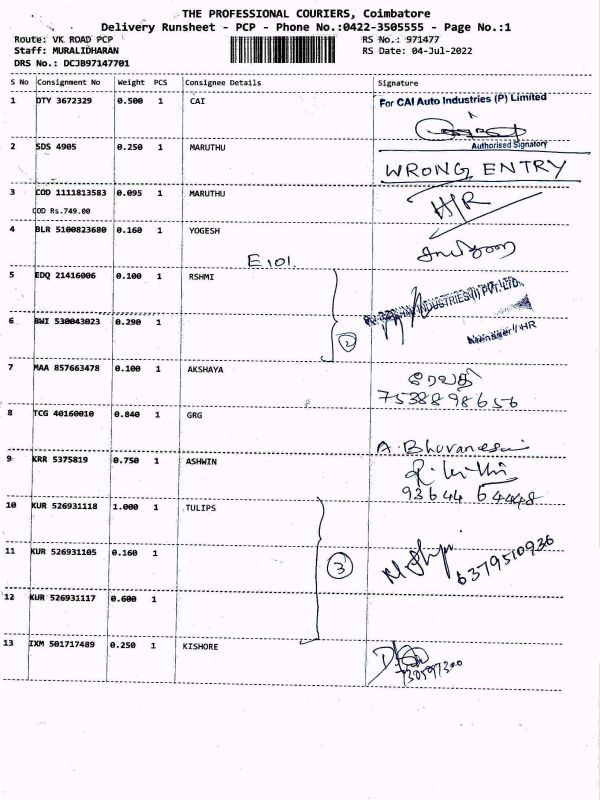 THE PROFESSIONAL COURIERS, Coimbatore
Delivery Runsheet - PCP - Phone No.:0422-3505555 - Page No.:1
Route: VK ROAD PCP RS No.: 971477
Staff: MURALIDHARAN RS Date: 04-Jul-2022
DRS No.: DCJB97147701
S No Consignment No Weight PCS Consignee Details Signature
1 DTY 3672329 0.500 1 CAI For CAI Auto Industries (P) Limited
Authorised Signatory
2 SDS 4905 0.250 1 MARUTHU WRONG ENTRY
3 COD 1111813583 0.095 1 MARUTHU H/R
COD Rs.749.00
4 BLR 5100823680 0.160 1 YOGESH
E101.
5 EDQ 21416006 0.100 1 RSHMI INDUSTRIES(I) PVT.LTD.
6 BWI 530043023 0.290 1 2 Manager / HR
7 MAA 857663478 0.100 1 AKSHAYA ரேவதி
7538898656
8 TCG 40160010 0.840 1 GRG
A. Bhuvanesari
9 KRR 5375819 0.750 1 ASHWIN
93644 64448
10 KUR 526931118 1.000 1 TULIPS
11 KUR 526931105 0.160 1 3 6379510936
12 KUR 526931117 0.600 1
13 IXM 501717489 0.250 1 KISHORE